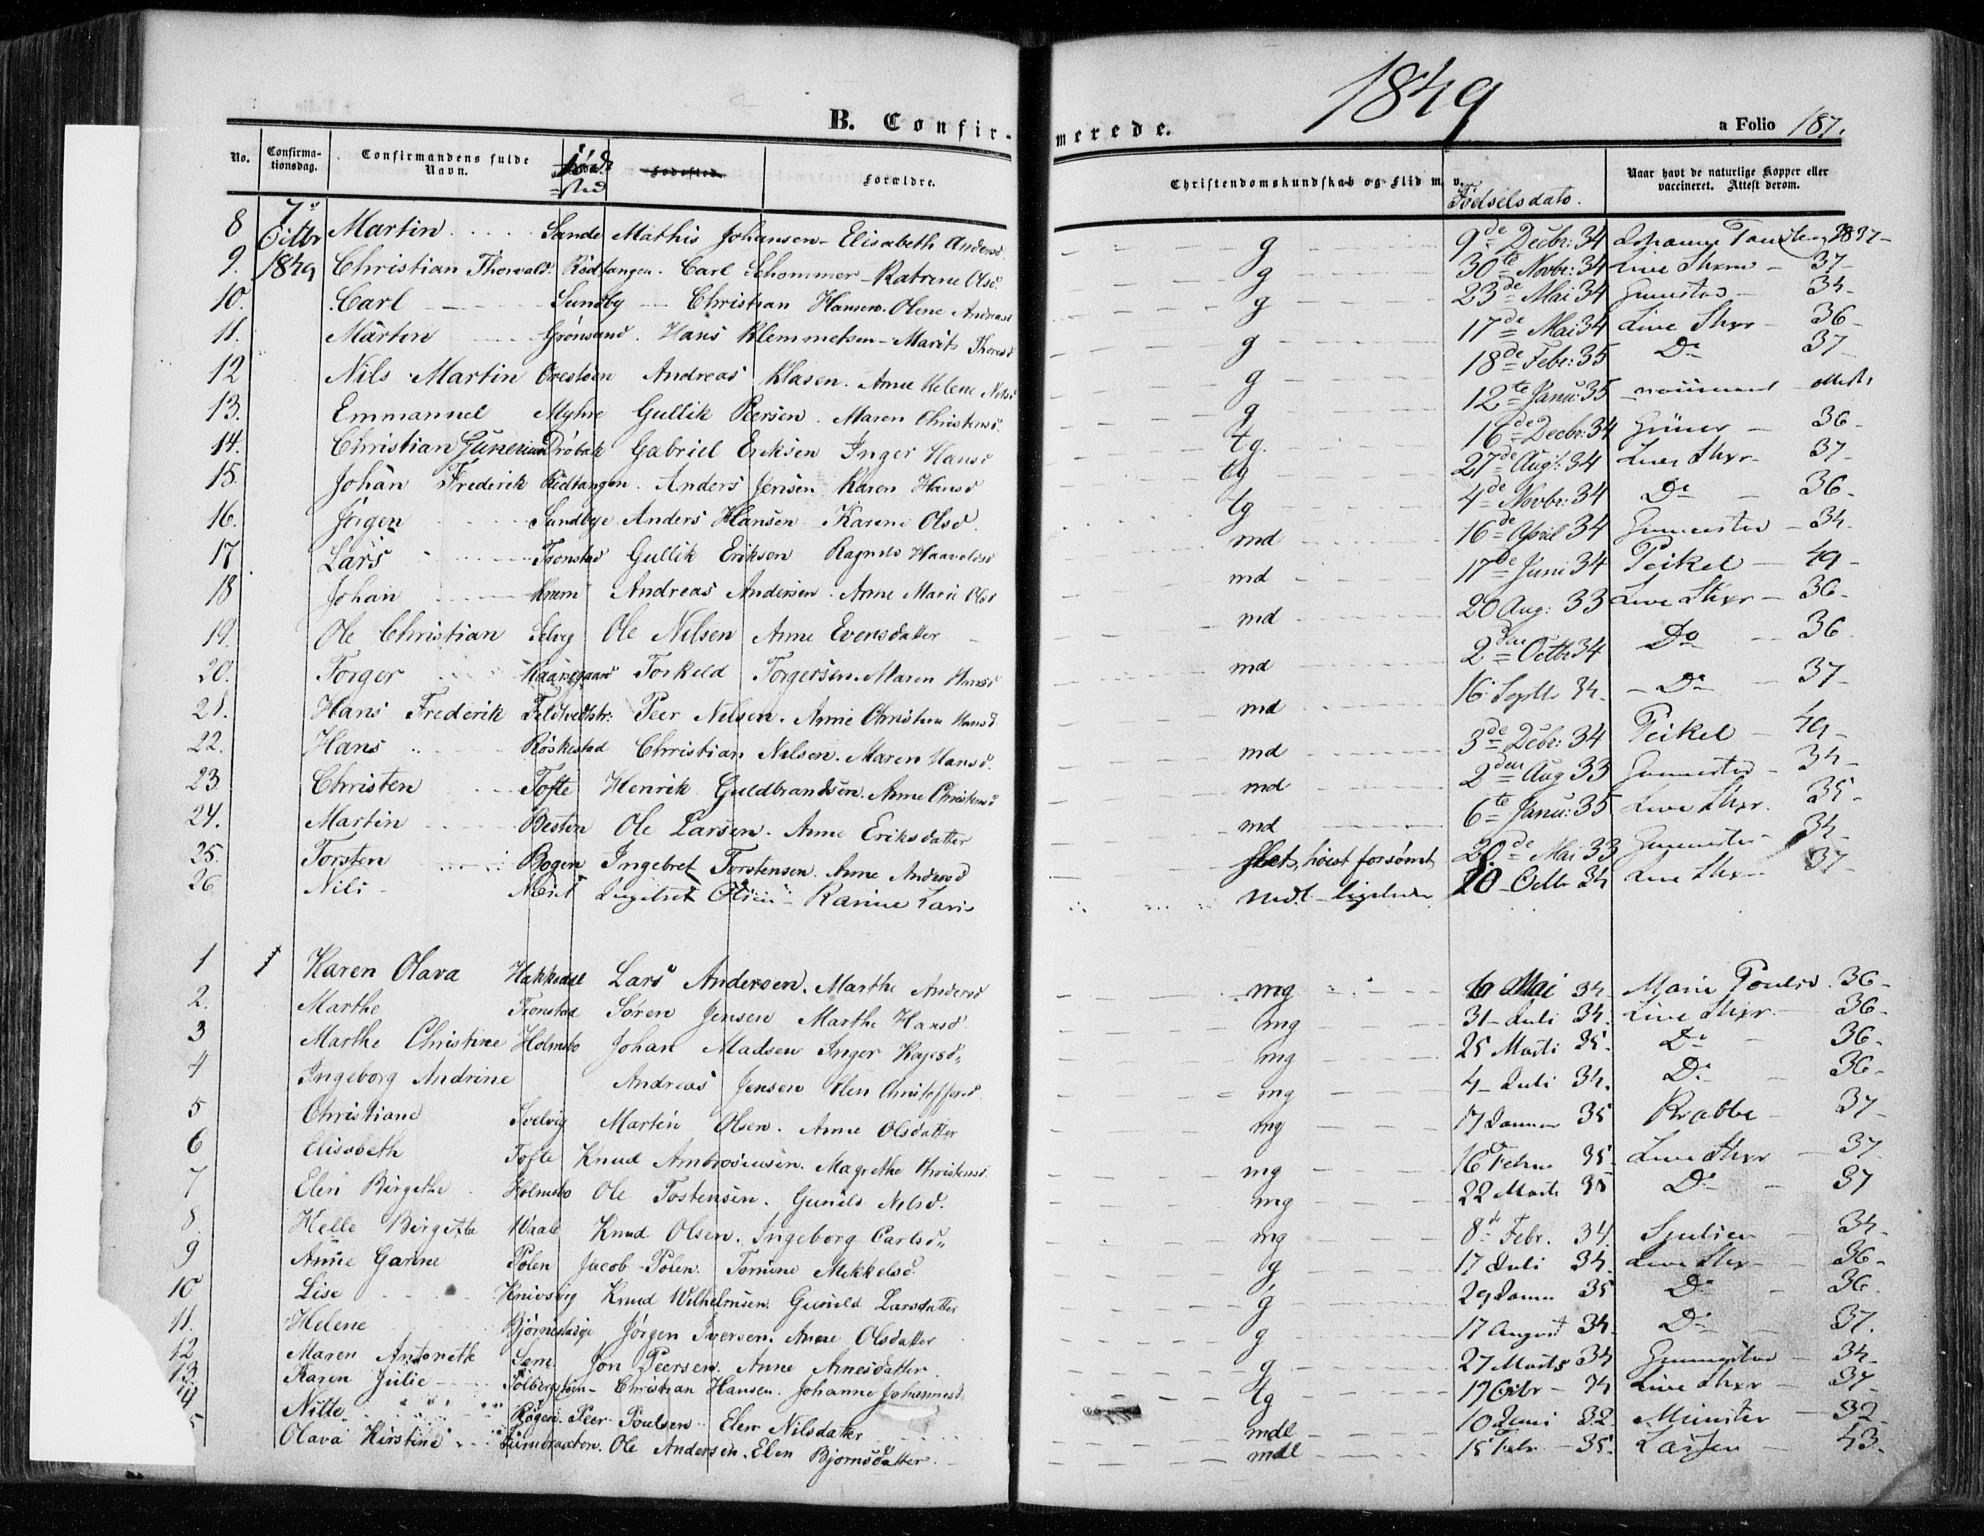 1849
B. Confirmerede.
a Folio 187.
No. Confirmationsdag. Confirmandens fulde Navn. Fødested. Forældre. Christendomskundskab og Flid m. v. Fødselsdato. Naar havt de naturlige Kopper eller vaccineret. Attest derom.
8 7de Octbr Martin Sande Mathis Johansen - Elisabeth Andersd. g 9de Decbr: 34 1837
9. 1849 Christian Thorvald Rødtangen. Carl Schommer - Katrine Olsd g 30te Novbr: 34 Live Sthxr - 37
10. Carl Sundby Christian Hansen. Olene Andreasd g 23de Mai 34 34
11. Martin Grønsand. Hans Klemmetsen - Marit Thoresd g 17de Mai 34 Live Sthxr - 36
12 Nils Martin Andreas Klasen. Anne Helene Nilsd g 18de Febr: 35 Do 37
13. Emmanuel Myhre Gullik Peersen. Maren Christensd g 12te Janu: 35
14. Christian Gunerius Drøbak Gabriel Eriksen Inger Hansd tg. 16de Decbr: 34 36
15. Johan Frederik Rødtangen. Anders Jensen Karen Hansd tg 27de Aug: 34 Live Sthxr - 37
16. Jørgen Sundbye Anders Hansen Karine Olsd. tg 4de Novbr: 34 Do 36
17 Lars Tronstad Gullik Eriksen Ragnild Haavelsd md 16de April 34 34
18 Johan Andreas Andersen. Anne Marie Olsd md 17de Juni 34 Peikel - 49
19. Ole Christian Selvig Ole Nilsen Anne Evensdatter md 20 Aug: 33 Live Sthxr - 36
20. Torger Torkeld Torgersen. Maren Hansd md 2den Octbr 34 Do 36
21. Hans Frederik Peer Nilsen. Anne Christine Hansd md 16 Septb 34. Do 37
22. Hans Røskestad Christian Nilsen. Maren Hansd. md 3de Decbr: 34 Peikel - 49
23 Christen Tofte Henrik Guldbrandsen. Anne Christensd md 2den Aug 33 34
24. Martin Ole Larsen. Anne Eriksdatter md 6te Janu: 35 Live Sthxr. 35
25. Torsten Bogen Ingebret Torstensen. Anne Andersd slet, høist forsømt 20de Mai 33 34
26 Nils Ingebret Olsen - Karine Larsd mdl. 10 - Octbr 34 Live Sthxr 37
1 Karen Olava Hakkedal Lars Andersen. Marthe Andersd mg 6 Mai 34. Marie Poulsd. 36
2. Marthe Tronstad Søren Jensen Marthe Hansd. mg 31 - Juli 34. Live Sthxr. 36
3 Marthe Christine Holmsbo Johan Madsen Inger Kajesd. mg 25 Marts 35. Do 36
4 Ingeborg Andrine Andreas Jensen Elen Christoffersd. mg 4 - Juli 34. Do 36
5 Christiane Svelvig Martin Olsen. Anne Olsdatter mg 17 Januar 35 Krabbe - 37
6 Elisabeth Tofte Knud Ambrosiusen. Magrethe Christensd. mg 16 Febru 35. Live Sthxr 37
7 Elen Birgethe Holmsbo Ole Tostensen. Gunild Nilsd. mg 22 Marts 35 Do 37
8. Helle Birgitte Waale Knud Olsen. Ingeborg Carlsd. mg 8de Febr. 34. 34
9 Anne Garine Polen Jacob Polen. Tomine Mikkelsd. g 17 Juli 34. Live Sthxr - 36
10 Lise Knivsvig Knud Wilhelmsen. Gunild Larsdatter g 29 Janu 35 Do 36
11. Helene Jørgen Iversen. Anne Olsdatter g 17 August 34. Do 37.
12 Maren Antonette Sem. Jon Peersen. Anne Arnesdatter. g 27 Marts 34 34
13. Karen Julie Christian Hansen. Johanne Johannesd. tg 17 Octbr - 34 Live Sthxr - 37
14 Nille Røgen. Peer Poulsen Elen Nilsdatter mdl 10 Juni 32. Münster - 32
5 Olava Kirstine Ole Andersen. Elen Bjørnsdatter. mdl 15 Febr - 35. Larsen - 43.